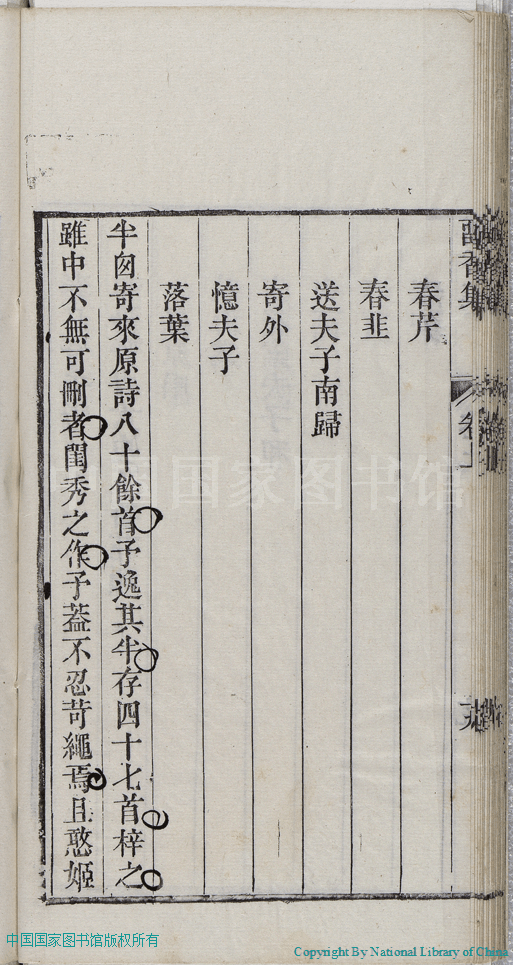 春芹
春韭
送夫子南歸
寄外
憶夫子
落葉
半囪寄來原詩八十餘首予逸其半存四十七首梓之
雖中不無可刪者閨秀之作予葢不忍苛繩焉且憨姬
卷上
中国国家图书馆
中国国家图书馆版权所有
Copyright By National Library of China